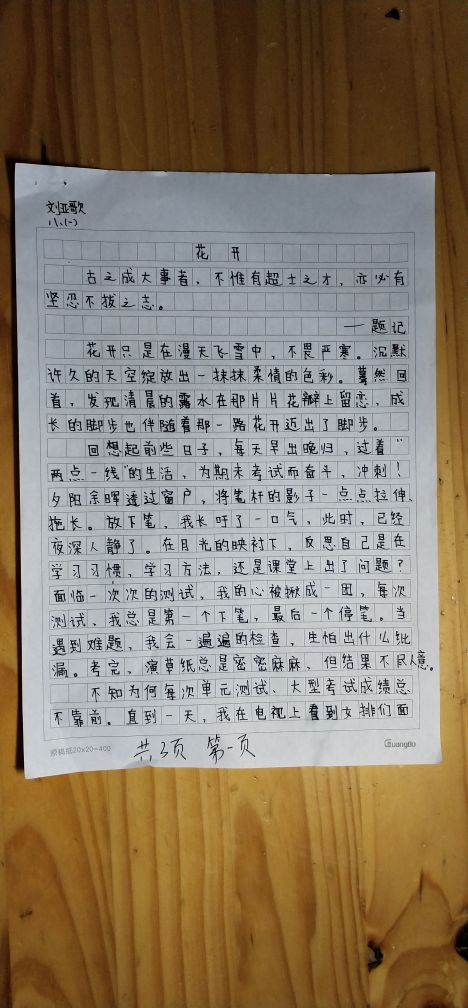 刘亚歌
八、(一)
花开
古之成大事者，不惟有超士之才，亦必有
坚忍不拔之志。
——题记
花开只是在漫天飞雪中，不畏严寒。沉默
许久的天空绽放出一抹抹柔情的色彩。蓦然回
首，发现清晨的露水在那片片花瓣上留恋，成
长的脚步也伴随着那一路花开迈出了脚步。
回想起前些日子，每天早出晚归，过着“
两点一线”的生活，为期末考试而奋斗，冲刺！
夕阳余晖透过窗户，将笔杆的影子一点点拉伸、
拖长。放下笔，我长吁了一口气，此时，已经
夜深人静了。在月光的映衬下，反思自己是在
学习习惯，学习方法，还是课堂上出了问题？
面临一次次的测试，我的心被揪成一团，每次
测试，我总是第一个下笔，最后一个停笔。当
遇到难题，我会一遍遍的检查，生怕出什么纰
漏。考完，演草纸总是密密麻麻，但结果不尽人意。
不知为何每次单元测试、大型考试成绩总
不靠前。直到一天，我在电视上看到女排们面
原稿纸20×20=400
GuangBo
共3页 第一页